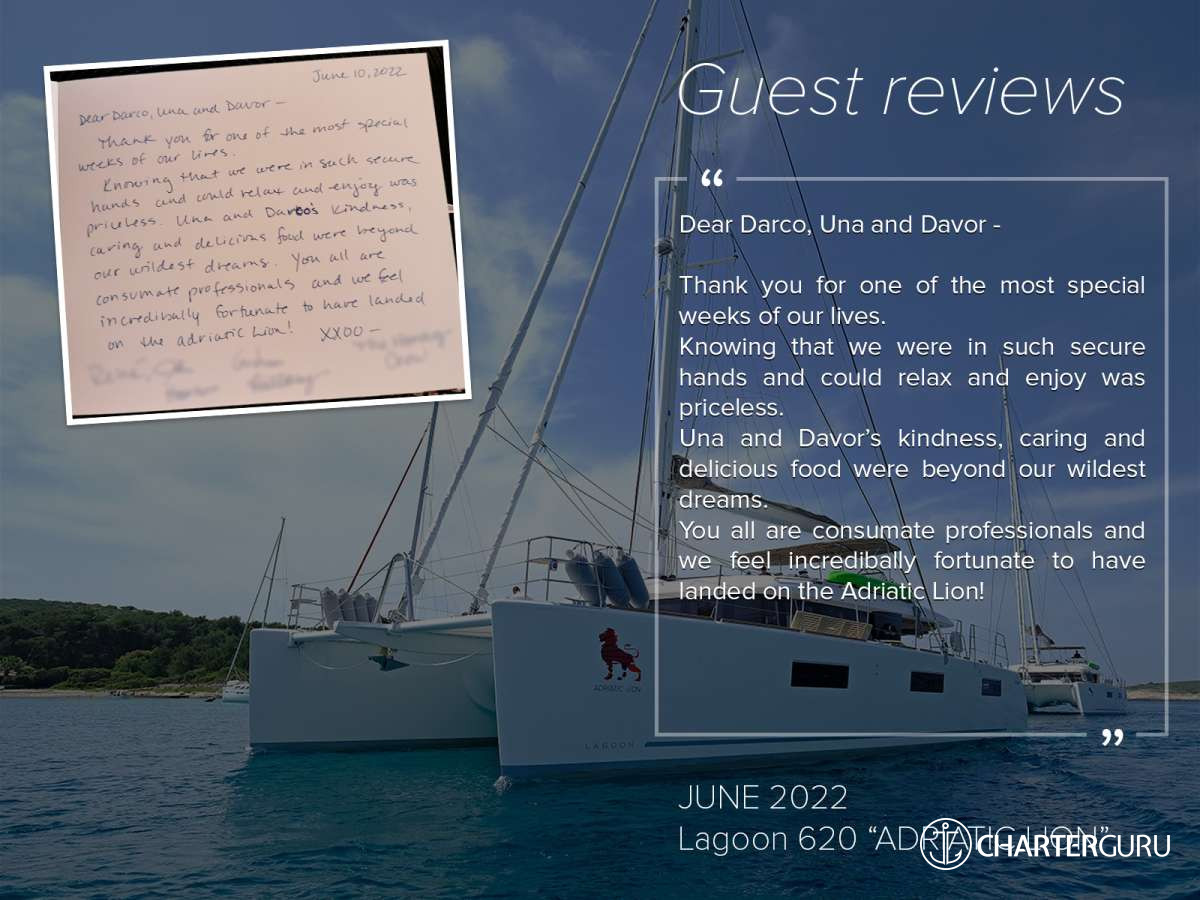 June 10, 2022
Dear Darco, Una and Davor -
Thank you for one of the most special
weeks of our lives.
Knowing that we were in such secure
hands and could relax and enjoy was
priceless. Una and Darco's kindness,
caring and delicious food were beyond
our wildest dreams. You all are
consumate professionals and we feel
incredibally fortunate to have landed
on the Adriatic Lion! XXOO -
Guest reviews
“
Dear Darco, Una and Davor -
Thank you for one of the most special
weeks of our lives.
Knowing that we were in such secure
hands and could relax and enjoy was
priceless.
Una and Davor’s kindness, caring and
delicious food were beyond our wildest
dreams.
You all are consumate professionals and
we feel incredibally fortunate to have
landed on the Adriatic Lion!
”
ADRIATIC LION
LAGOON
JUNE 2022
Lagoon 620 “ADRIATIC LION”
CHARTERGURU